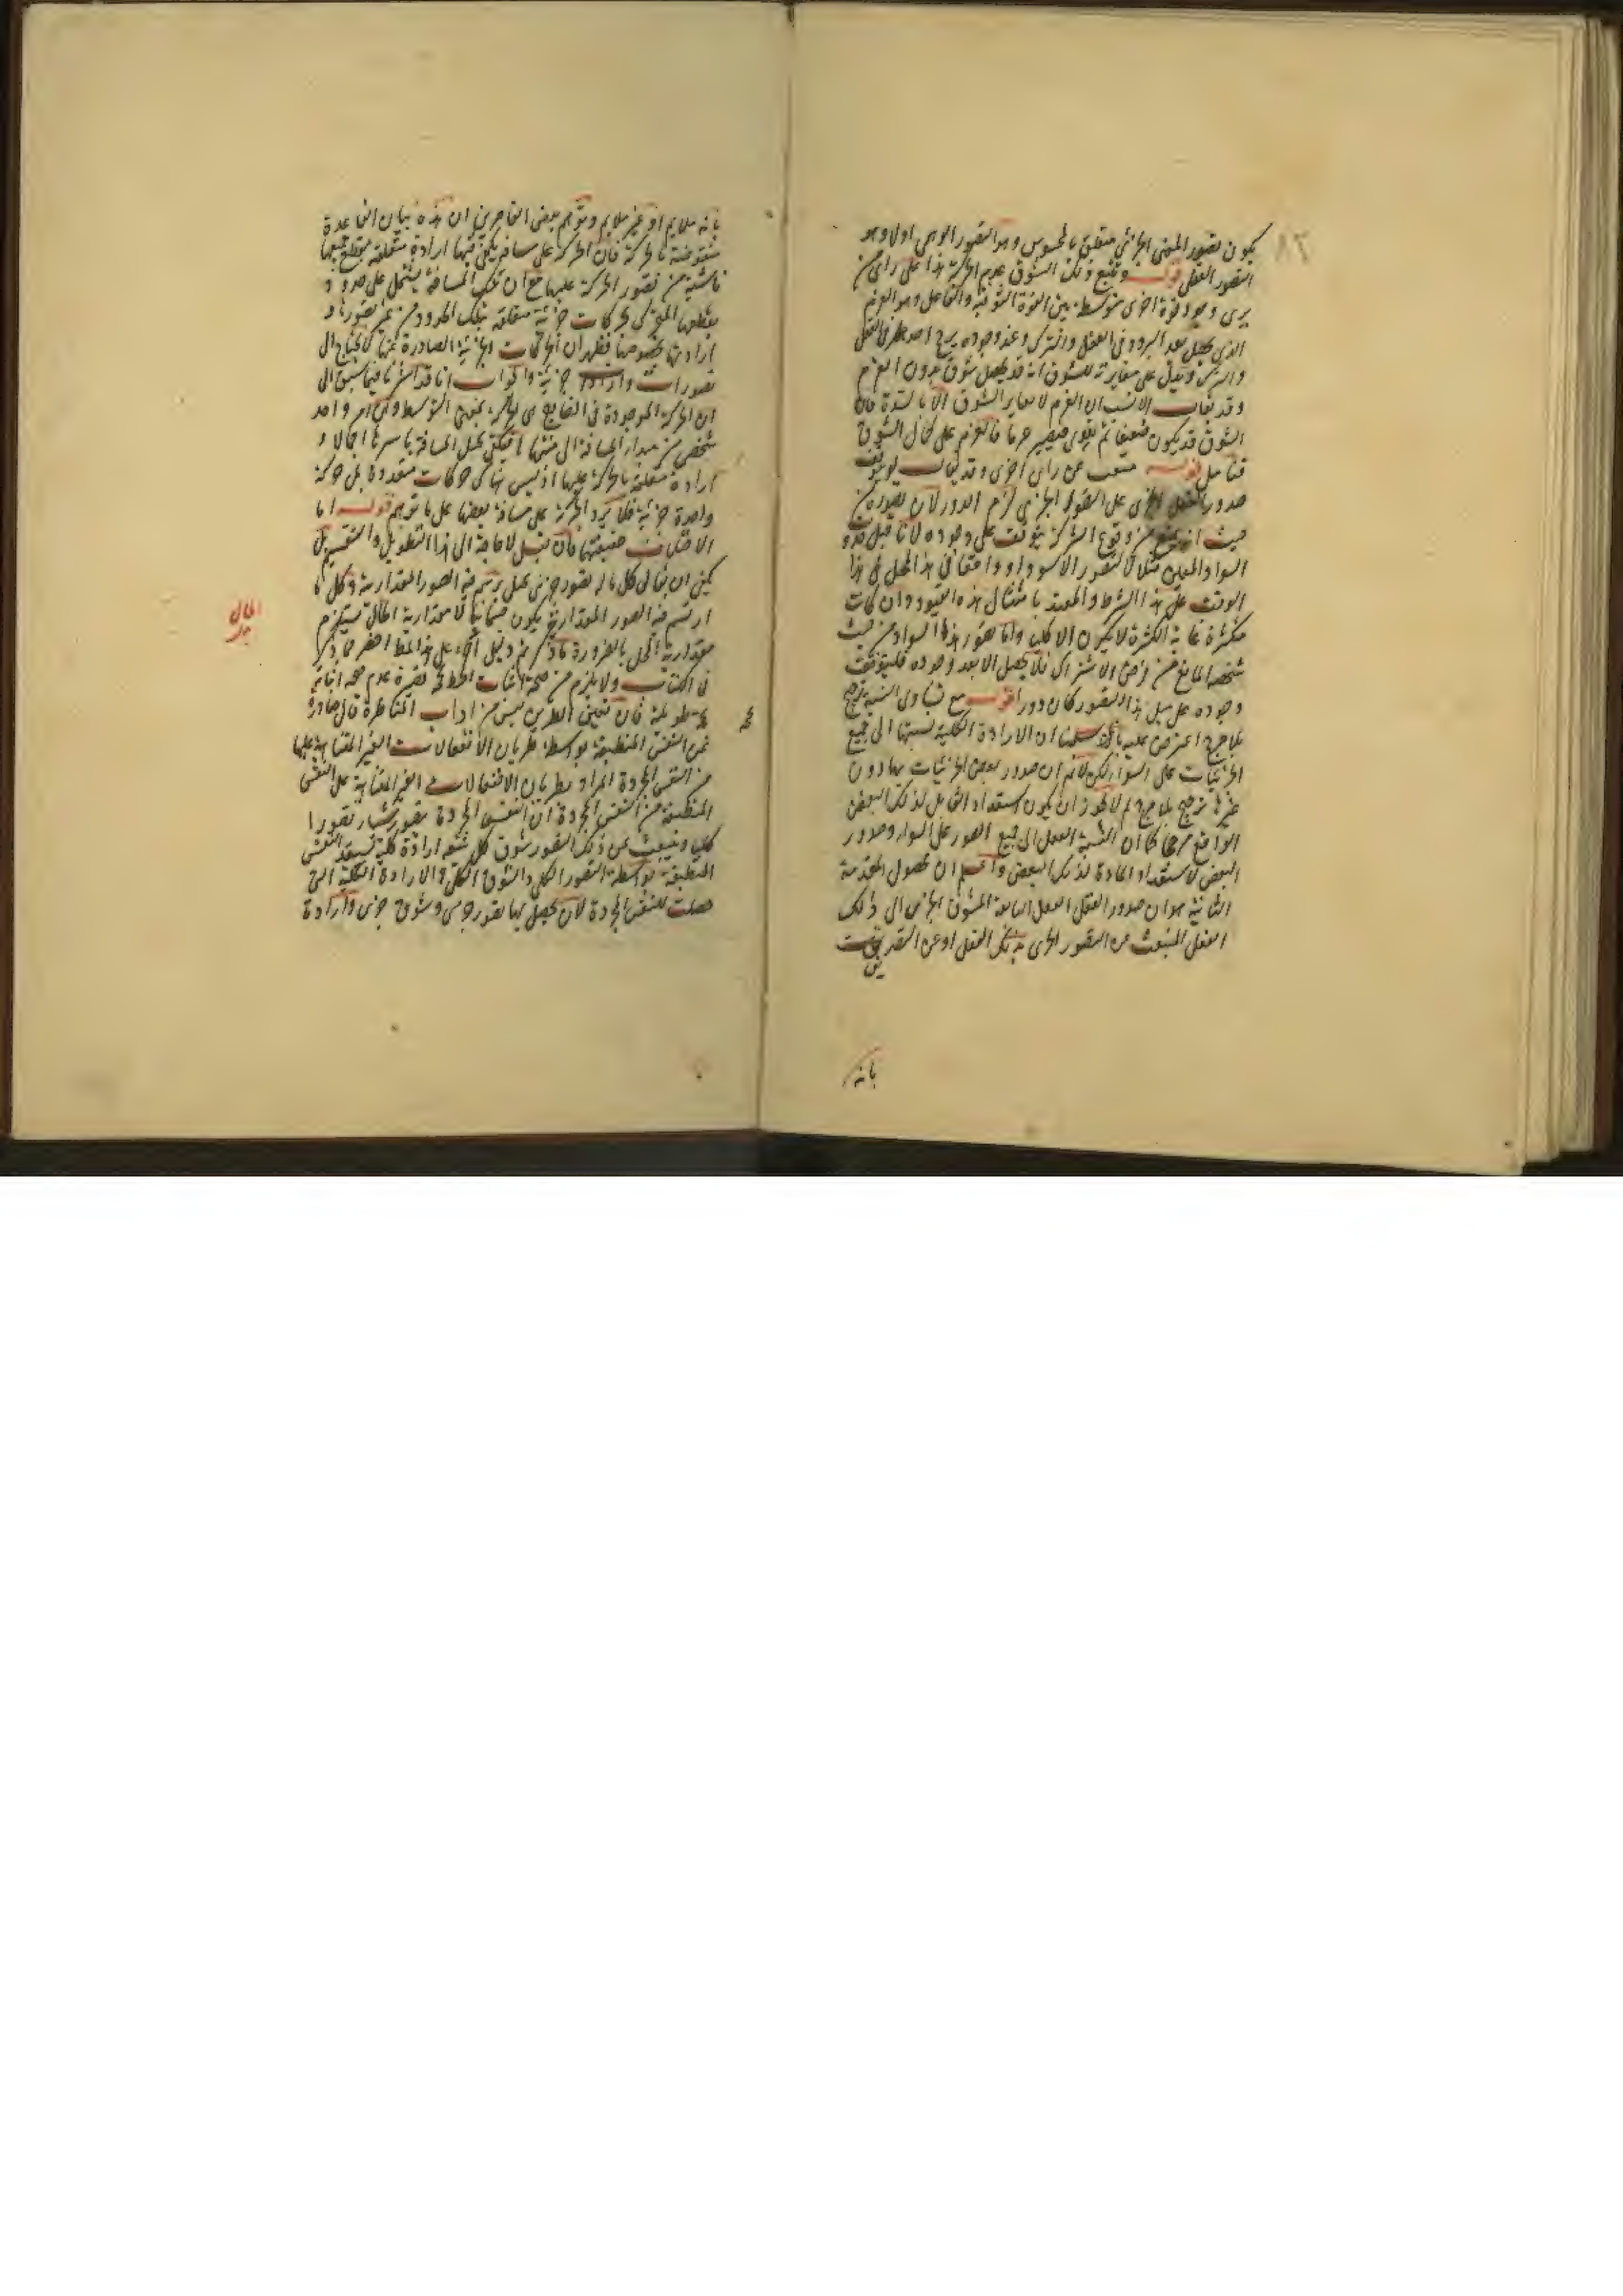 يكون تصور المعنى الجزئي متعلق بالمحسوس وهو التصور الوهمي اولا وهو
التصور العقلي قوله ويتبع ذلك الشوق عزم الحركة هذا على راى من
يرى وجود قوة اخرى متوسطة بين القوة الشوقية والفاعل وهو العزم
الذى يحصل بعد التردد فى الفعل والترك وعند وجوده يرجح احد طرفى الفعل
والترك ويدل على مغايرته للشوق انه قد يحصل شوق بدون العزم
وقد يقال الاشبه ان العزم لا يغاير الشوق الا بالشدة فان
الشوق قد يكون ضعيفا ثم يقوى فيصير عزما فالعزم على كمال الشوق
فتأمل قوله منبعث عن راى جزى وقد يقال لو توقف
صدور الفعل الجزى على التصور الجزى لزم الدور لان تصوره من
حيث انه يمنع من وقوع الشركة يتوقف على وجوده لانا قبل وجود
السواد المعين مثلا لا نتصور الا سوادا واقعا فى هذا المحل فى هذا
الوقت على هذا الشرط والمقيد بامثال هذه القيود وان كانت
متكثرة غاية الكثرة لا يكون الا كليا واما تصور هذا السواد من حيث
شخصه المانع من فرض الاشتراك فلا يحصل الا بعد وجوده فلو توقف
وجوده على مثل هذا التصور كان دورا قوله مع تساوى النسبة ترجيح
بلا مرجح اعترض عليه بانا سلمنا ان الارادة الكلية نسبتها الى جميع
الجزئيات على السواء لكن لا نم ان صدور بعض الجزئيات بها دون
غيرها ترجيح بلا مرجح لم لا يجوز ان يكون استعداد القابل لذلك البعض
الواقع مرجحا كما ان نسبة العقل الى جميع الصور على السواء وصدور
البعض لاستعداد المادة لذلك البعض واعلم ان محصول المقدمة
الثانية هو ان صدور الفعل الفعل التابعة للشوق الجزئى الى ذلك
الفعل المنبعث عن التصور الجزى بذلك الفعل او عن التصديق
بانه
بانه ملايم او غير ملايم وتوهم بعض القاصرين ان هذه بيان القاعدة
منقوضة بالحركة فان الحركة على مسافة يكفى فيها ارادة متعلقة بقطع جميعها
ناشية من تصور الحركة عليها مع ان تلك المسافة يشتمل على حدود
يقطعها المتحرك بحركات جزئية متعلقة بتلك الحدود من غير تصورها و
ارادتها بخصوصها فظهر ان الحركات الجزئية الصادرة عنها لا يحتاج الى
تصورات وارادات جزئية والجواب انا قد اشرنا فيما سبق الى
ان الحركة الموجودة فى الخارج هى الحركة بمعنى التوسط وهى امر واحد
شخصى من مبدأ المسافة الى منتهاها فيكفى تخيل المسافة باسرها اجمالا و
ارادة متعلقة بالحركة عليها اذ ليس هناك حركات متعددة بل حركة
واحدة جزئية فلا يرد الحركة على مسافة بعضها على ما توهم قوله اما
الاختلاف حقيقتها فان قيل لا حاجة الى هذا التطويل والتفصيل بل
يكفى ان يقال كل ماله تصور جزئى يحل يرتسم فيه الصور المقدارية وكل ما
ارتسم فيه الصور المقدارية يكون جسمانيا لان مقدارية الحال يستلزم
مقدارية المحل بالضرورة ما ذكر ثم دليل آخر على هذا المط اخصر مما ذكر
فى الكتاب ولا يلزم من صحة اثبات المط بمقدمة عدم صحة اثباته
بمقدمة فان تعيين الطريق ليس من اداب المناظرة قال صادرة
عن النفس المنطبعة بواسطة طريان الانفعالات الغير المتناهية عليها
من النفس المجردة المراد بطريان الانفعالات الغير المتناهية على النفس
المنطبعة من النفس المجردة ان النفس المجردة يتصور شيئا تصورا
كليا وينبعث عن ذلك التصور شوق كلى يتبعه ارادة كلية فيستعد النفس
المنطبعة بواسطة التصور الكلى والشوق الكلى والارادة الكلية التى
حصلت للنفس المجردة لان يحصل لها تصور جزى وشوق جزئى وارادة
الحال